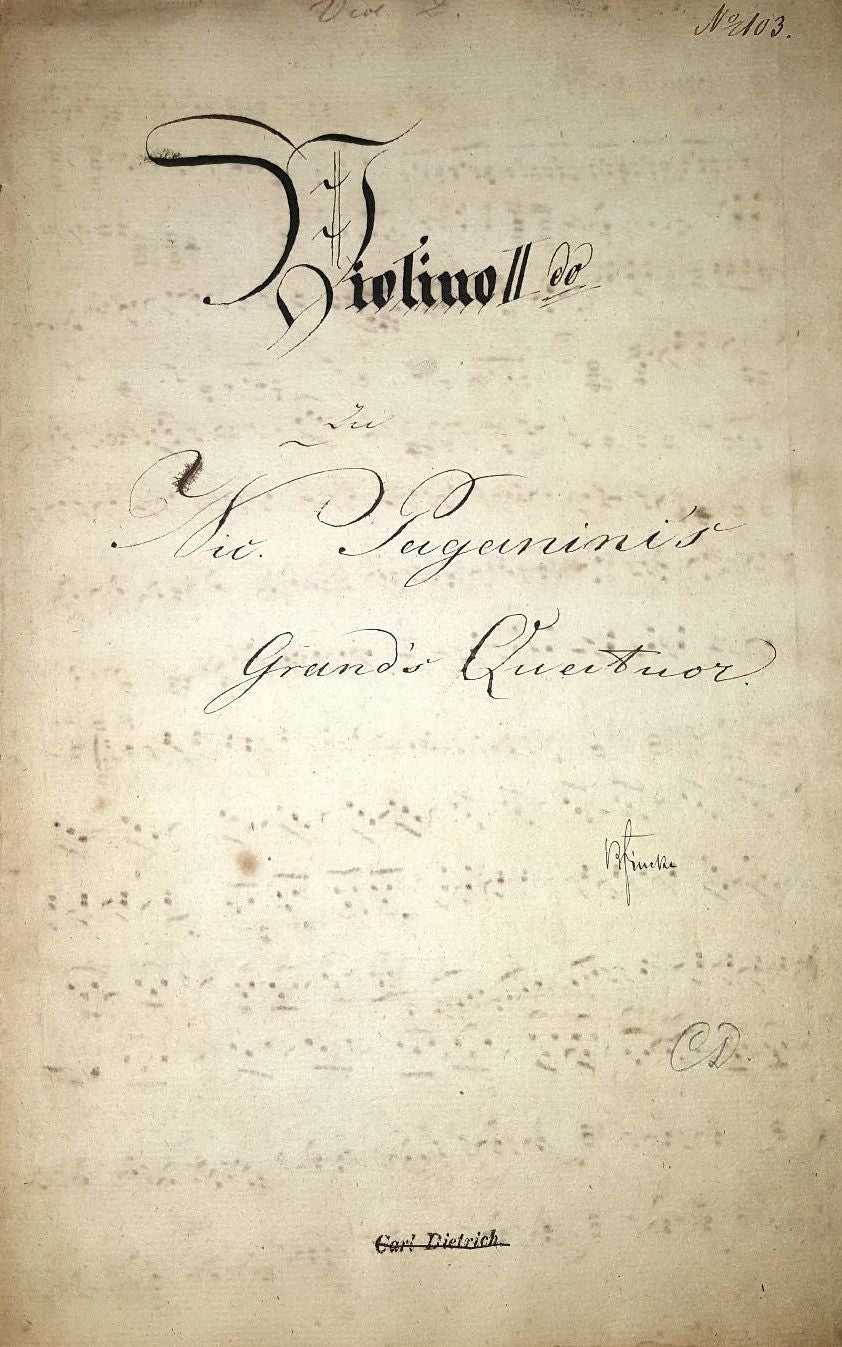 Viol 2.
No 103.
Violino II do
zu
Nic. Paganini's
Grand's Quartuor.
CD.
Carl Dietrich